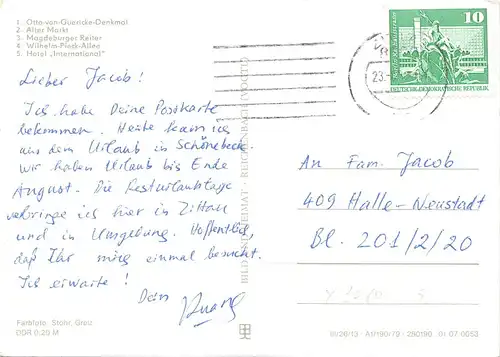 1. Otto-von-Guericke-Denkmal
2. Alter Markt
3. Magdeburger Reiter
4. Wilhelm-Pieck-Allee
5. Hotel „International"
Lieber Jacob!
Ich habe Deine Postkarte
bekommen. Heute kam ich
aus dem Urlaub in Schönebeck.
Wir haben Urlaub bis Ende
August. Die Resturlaubstage
verbringe ich hier in Zittau
und in Umgebung. Hoffentlich,
daß Ihr mich einmal besucht.
Ich erwarte!
Dein
Farbfoto: Stöhr, Greiz
DDR 0,25 M
BILD UND HEIMAT · REICHENBACH (VOGTL)
10
DEUTSCHE DEMOKRATISCHE REPUBLIK
23.
An Fam. Jacob
409 Halle-Neustadt
Bl. 201/2/20
III/26/13 · A1/190/79 · 01 07 0053